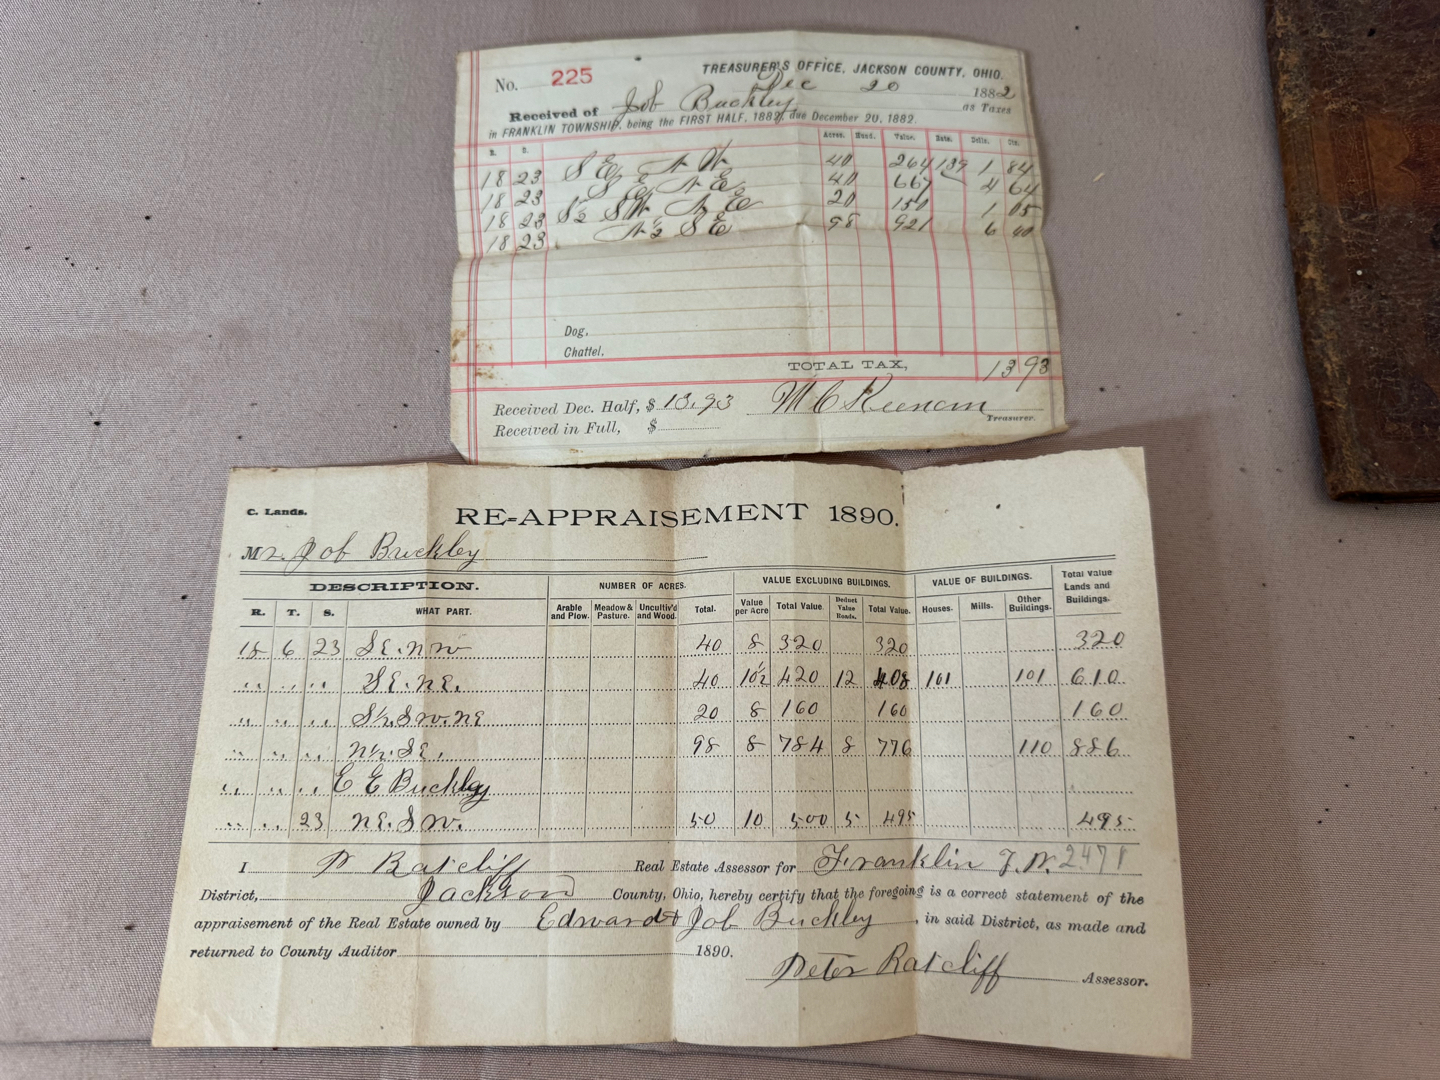 No. 225 TREASURER'S OFFICE, JACKSON COUNTY, OHIO.
Dec 20 1882
Received of Job Buckley as Taxes
in FRANKLIN TOWNSHIP, being the FIRST HALF, 1882, due December 20, 1882.
Acres. Hund. Value. Rate. Dolls. Cts.
18 23 S E N W 40 264 139 1 84
18 23 S E N E 40 667 4 64
18 23 S½ S W N E 20 150 1 05
18 23 N½ S E 98 921 6 40
Dog,
Chattel,
TOTAL TAX, 13 93
Received Dec. Half, $ 13.93 M C Keenan
Treasurer.
Received in Full, $
C. Lands. RE-APPRAISEMENT 1890.
Mr. Job Buckley
DESCRIPTION. NUMBER OF ACRES. VALUE EXCLUDING BUILDINGS. VALUE OF BUILDINGS. Total Value Lands and Buildings.
R. T. S. WHAT PART. Arable and Plow. Meadow & Pasture. Uncultiv'd and Wood. Total. Value per Acre Total Value. Deduct Value Roads. Total Value. Houses. Mills. Other Buildings.
18 6 23 S E. N W 40 8 320 320 320
" " " S E. N E. 40 10½ 420 12 408 101 101 610
" " " S½ S W. N E 20 8 160 160 160
" " " N½. S E. 98 8 784 8 776 110 886
" " " E E Buckley
" " 23 N E. S W. 50 10 500 5 495 495
I P Ratcliff Real Estate Assessor for Franklin T.P. 2471
District, Jackson County, Ohio, hereby certify that the foregoing is a correct statement of the
appraisement of the Real Estate owned by Edward & Job Buckley, in said District, as made and
returned to County Auditor 1890.
Peter Ratcliff Assessor.